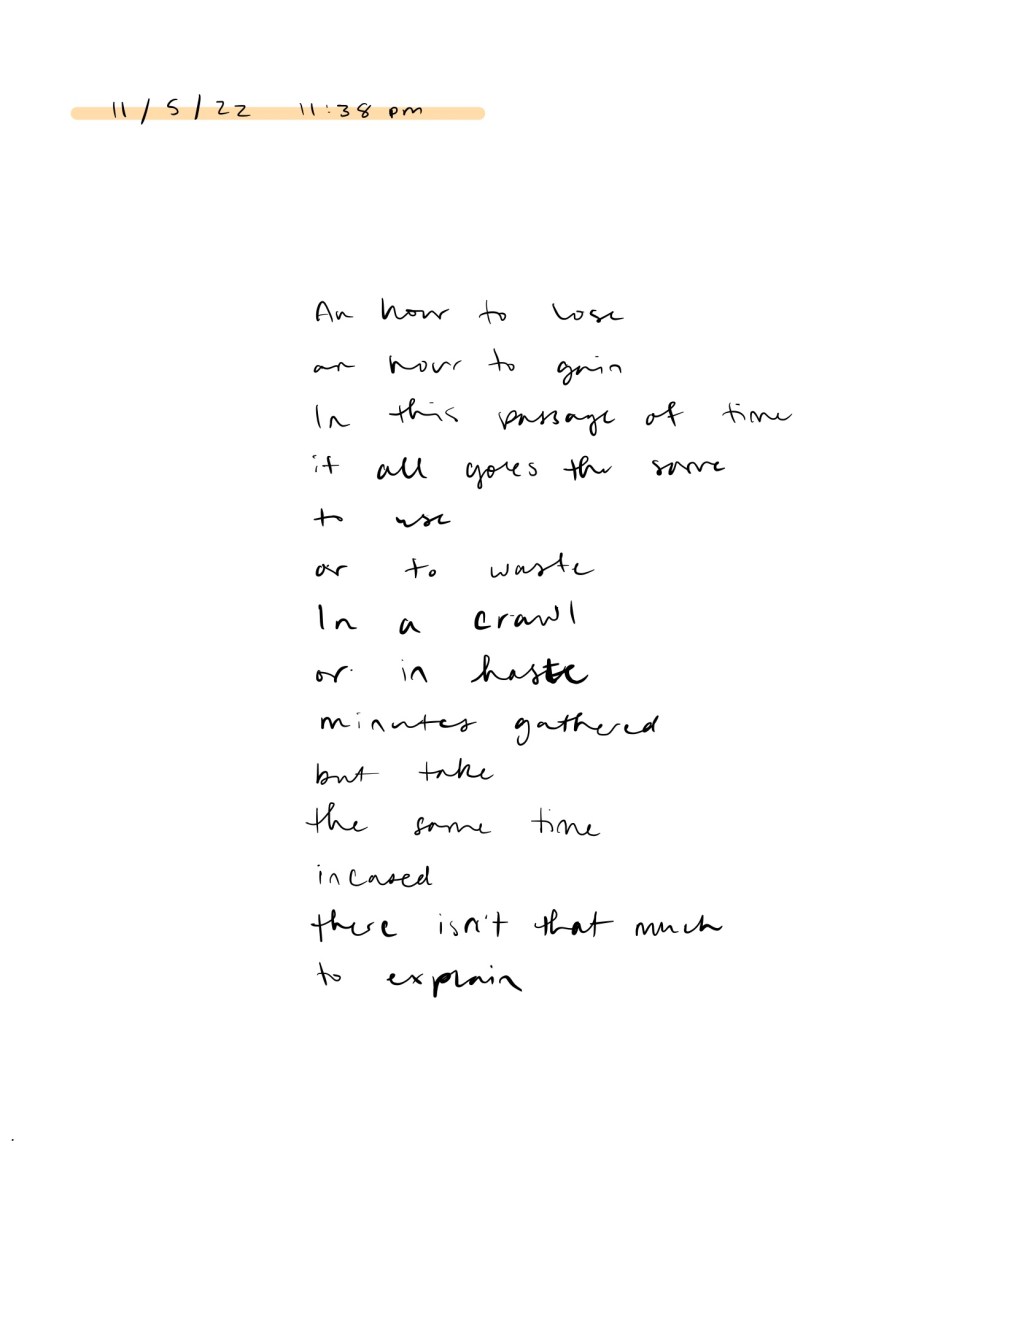 11/5/22 11:38 pm
An hour to lose
an hour to gain
In this passage of time
it all goes the same
to use
or to waste
In a crawl
or in haste
minutes gathered
but take
the same time
incased
there isn't that much
to explain